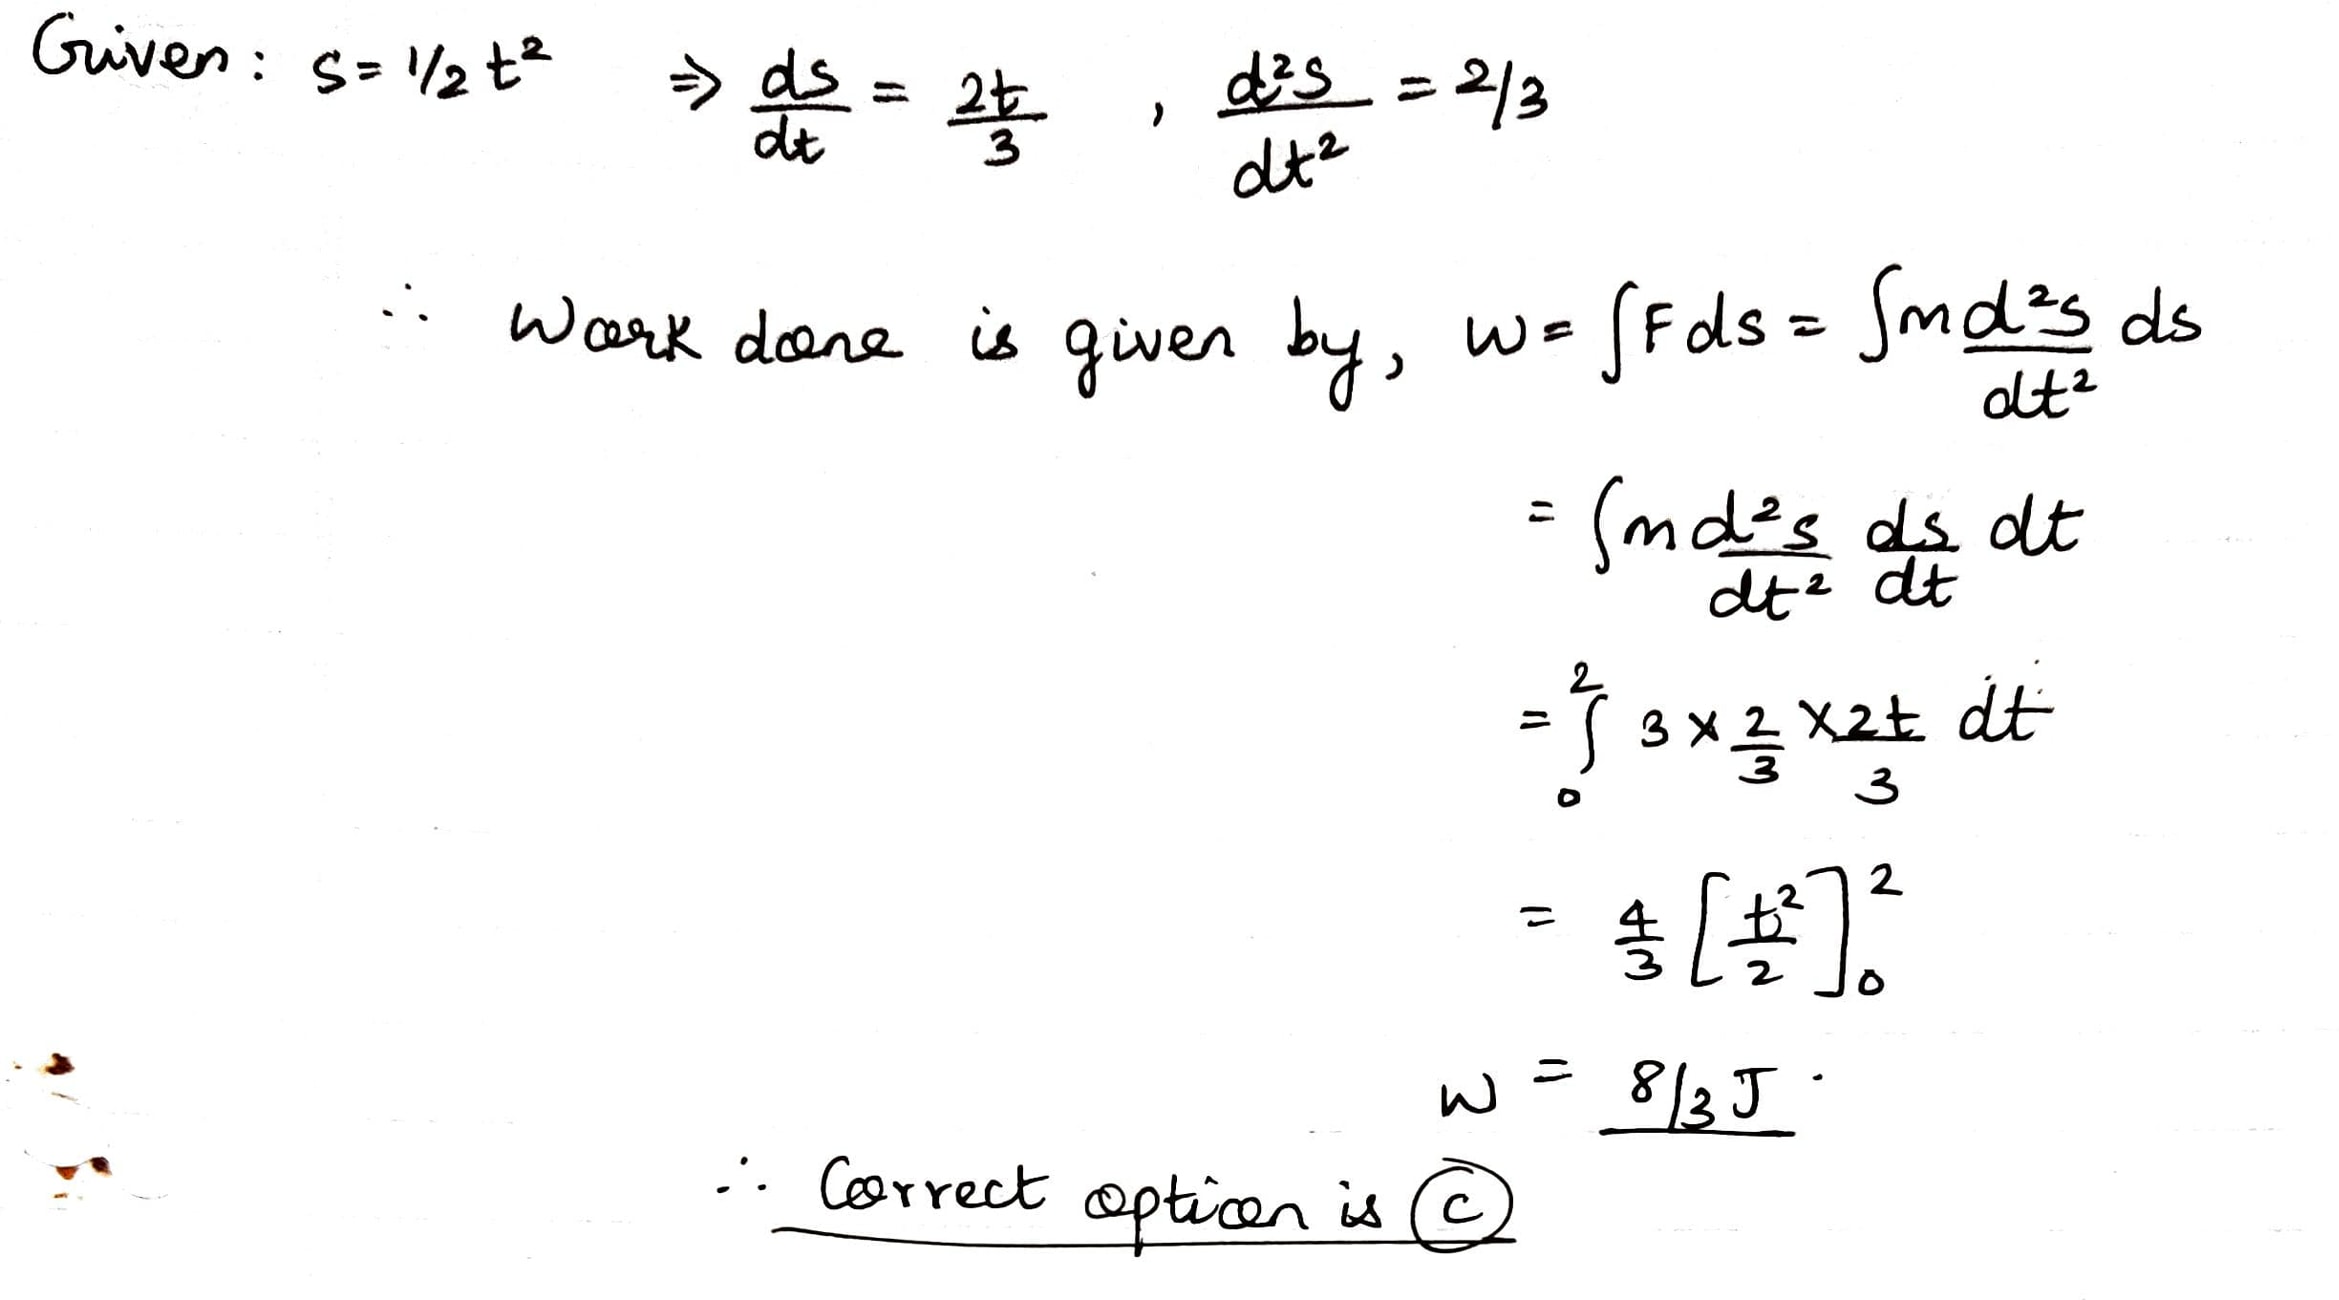 Given: s = 1/2 t² ⇒ ds/dt = 2t/3 , d²s/dt² = 2/3
∴ Work done is given by, W = ∫F ds = ∫m d²s/dt² ds
= ∫m d²s/dt² ds/dt dt
= ∫₀² 3 × 2/3 × 2t/3 dt
= 4/3 [t²/2]₀²
W = 8/3 J.
∴ Correct option is (C)